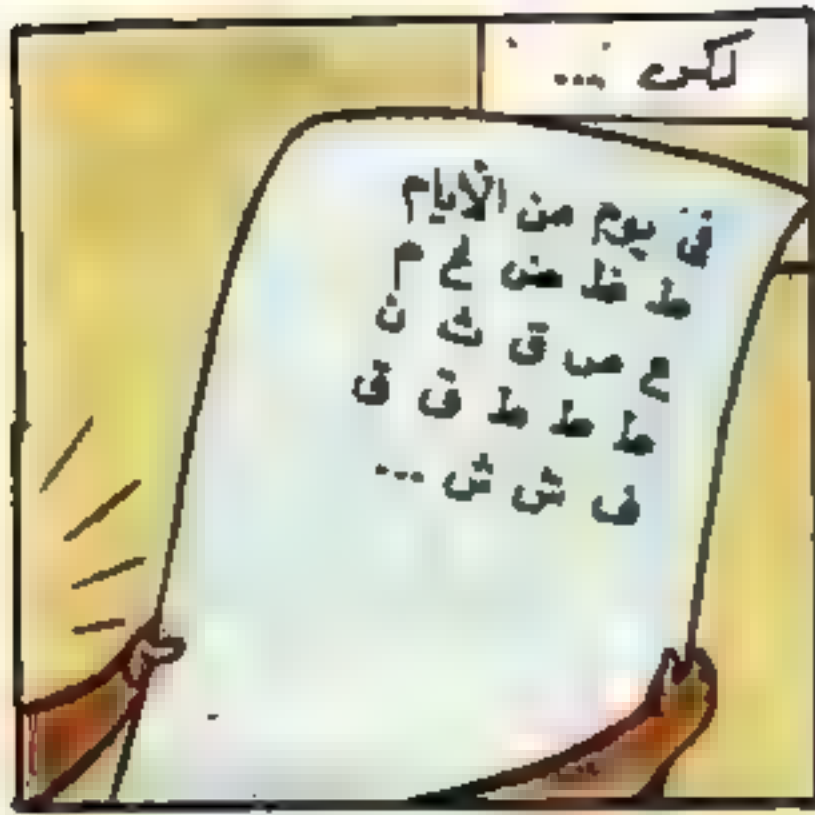 لكن ...
في يوم من الأيام
ط ظ ض ع م
ع ص ق ث ن
ط ط ط ق ق
ف ش ش ...